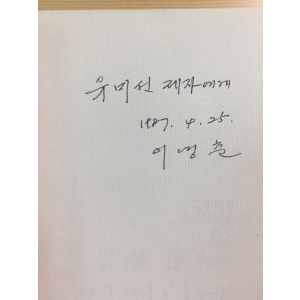 유미선 제자에게
1987. 4. 25.
이영훈